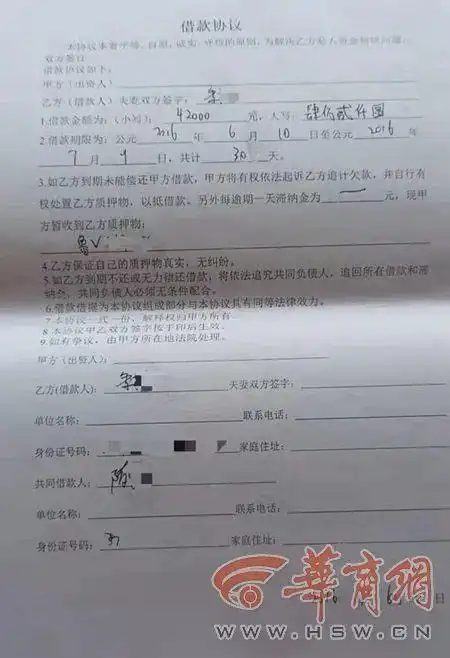 借款协议
本协议本着平等、自愿、诚实、守信的原则，为解决乙方
双方签订
借款协议如下：
甲方（出资人）
乙方（借款人）夫妻双方签字：
1.借款金额为：（小写）：42000 元，大写：肆万贰仟圆
2.借款期限为：公元 2016 年 6 月 10 日至公元 2016 年
7 月 9 日，共计 30 天。
3.如乙方到期未能偿还甲方借款，甲方将有权依法起诉乙方追计欠款，并自行有
权处置乙方质押物，以抵借款。另外每逾期一天滞纳金为 一 元，现甲
方暂收到乙方质押物：
鲁V
4.乙方保证自己的质押物真实，无纠纷。
5.如乙方到期不还或无力偿还借款，将依法追究共同负债人，追回所有借款和滞
纳金，共同负债人必须无条件配合。
6.借款借据为本协议组成部分与本协议具有同等法律效力。
7.本协议一式一份，解释权归甲方所有。
8.本协议甲乙双方签字按手印后生效。
9.如有争议，由甲方所在地法院处理。
甲方（出资人）：
乙方(借款人)： 夫妻双方签字：
单位名称： 联系电话：
身份证号码： 家庭住址：
共同借款人：
单位名称： 联系电话：
身份证号码： 家庭住址：
日
華商網
WWW.HSW.CN